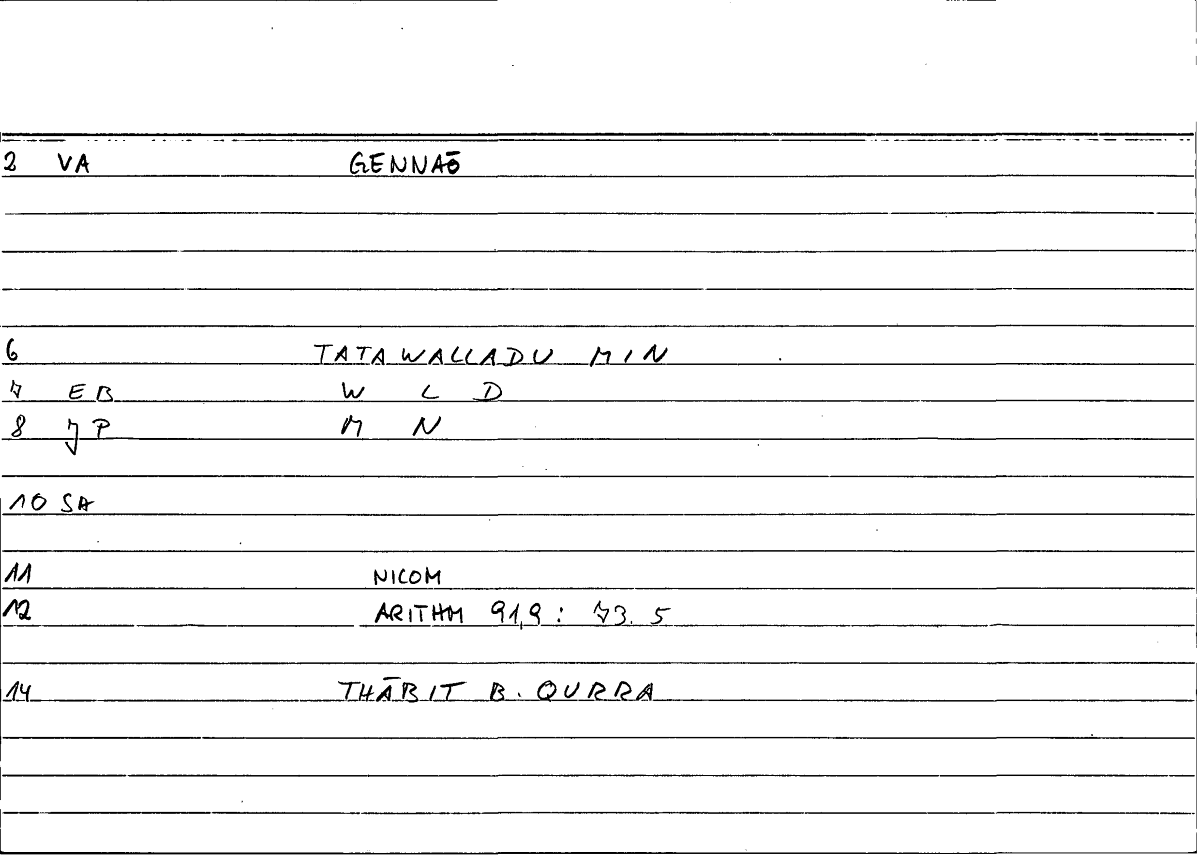 2 VA GENNAŌ
6 TATAWALLADU MIN
7 EB W L D
8 JP M N
10 SA
11 NICOM
12 ARITHM 91,9 : 73. 5
14 THĀBIT B. QURRA